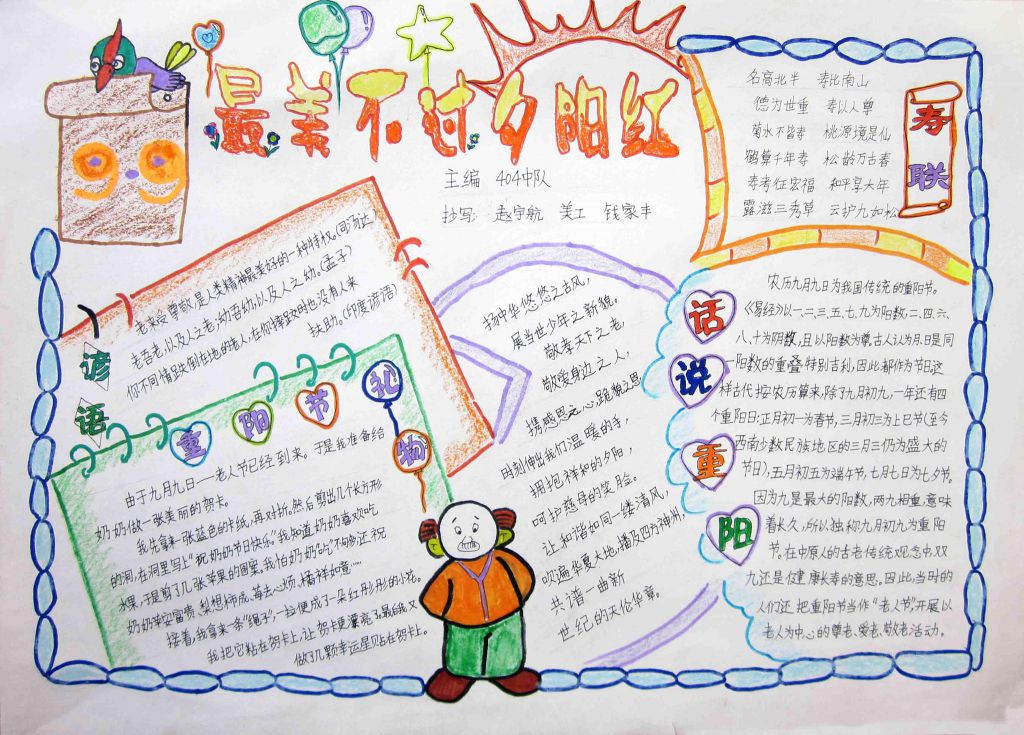 最美不过夕阳红
主编 404中队
抄写: 赵宇航 美工 钱家丰
99
寿联
名高北斗 寿比南山
德为世重 寿以人尊
菊水不皆寿 桃源境是仙
鹤算千年寿 松龄万古春
寿考征宏福 和平享大年
露滋三秀草 云护九如松
谚语
老来受尊敬,是人类精神最美好的一种特权。(司汤达)
老吾老,以及人之老;幼吾幼,以及人之幼。(孟子)
你不同情跌倒在地的老人,在你摔跤时也没有人来
扶助。(印度谚语)
重阳节礼物
由于九月九日——老人节已经到来。于是我准备给
奶奶做一张美丽的贺卡。
我先拿来一张蓝色的卡纸,再对折。然后剪出几个长方形
的洞,在洞里写上“祝奶奶节日快乐。”我知道奶奶喜欢吃
水果,于是剪了几张苹果的图案。我怕奶奶吃“不够”,还祝
奶奶苹安富贵,梨想柿成,莓去心烦,橘祥如意……
接着,我拿来一条“绳子”,一拉便成了一朵红彤彤的小花。
我把它粘在贺卡上,让贺卡更漂亮了。最后,我又
做了几颗幸运星贴在贺卡上。
扬中华悠悠之古风,
展当世少年之新貌。
敬孝天下之老,
敬爱身边之人,
携感恩之心,跪貌之恩
时刻伸出我们温暖的手,
拥抱祥和的夕阳,
呵护慈母的笑脸。
让和谐如同一缕清风,
吹遍华夏大地,播及四方神州,
共谱一曲新
世纪的天伦华章。
话说重阳
农历九月九日为我国传统的重阳节。
《易经》以一、三、五、七、九为阳数,二、四、六、
八、十为阴数,且以阳数为尊,古人认为月日是同
一阳数的重叠特别吉利,因此都作为节日。这
样古代按农历算来,除了九月初九,一年还有四
个重阳日:正月初一为春节,三月初三为上巳节(至今
西南少数民族地区的三月三仍为盛大的
节日),五月初五为端午节,七月七日为七夕节。
因为九是最大的阳数,两九相重,意味
着长久,所以独称九月初九为重阳
节。在中原人的古老传统观念中,双
九还是健康长寿的意思。因此,当时的
人们还把重阳节当作“老人节”,开展以
老人为中心的尊老、爱老、敬老活动。